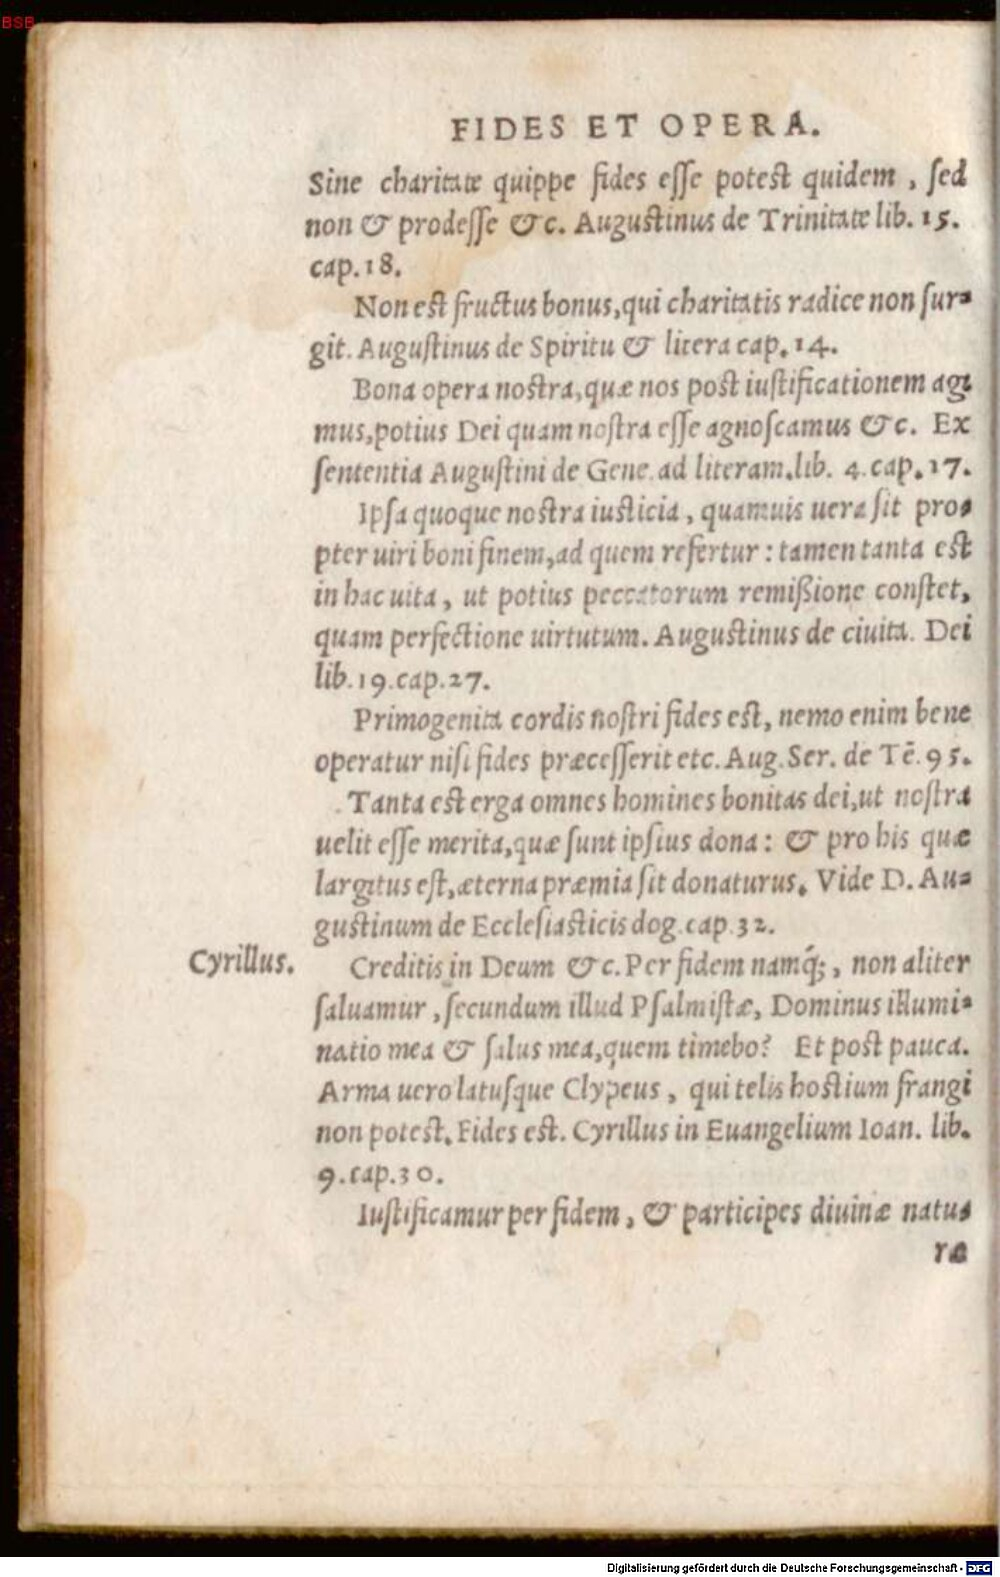 BSB
FIDES ET OPERA.
Sine charitate quippe fides esse potest quidem, sed
non & prodesse &c. Augustinus de Trinitate lib. 15.
cap. 18.
Non est fructus bonus, qui charitatis radice non sur-
git. Augustinus de Spiritu & litera cap. 14.
Bona opera nostra, quæ nos post iustificationem agi
mus, potius Dei quam nostra esse agnoscamus &c. Ex
sententia Augustini de Gene. ad literam. lib. 4. cap. 17.
Ipsa quoque nostra iusticia, quamuis uera sit pro-
pter uiri boni finem, ad quem refertur: tamen tanta est
in hac uita, ut potius peccatorum remißione constet,
quam perfectione uirtutum. Augustinus de ciuita. Dei
lib. 19. cap. 27.
Primogenita cordis nostri fides est, nemo enim bene
operatur nisi fides præcesserit etc. Aug. Ser. de Tē. 95.
Tanta est erga omnes homines bonitas dei, ut nostra
uelit esse merita, quæ sunt ipsius dona: & pro his quæ
largitus est, æterna præmia sit donaturus. Vide D. Au-
gustinum de Ecclesiasticis dog. cap. 32.
Cyrillus.
Creditis in Deum &c. Per fidem namq́;, non aliter
saluamur, secundum illud Psalmistæ, Dominus illumi-
natio mea & salus mea, quem timebo? Et post pauca.
Arma uero latusque Clypeus, qui telis hostium frangi
non potest. Fides est. Cyrillus in Euangelium Ioan. lib.
9. cap. 30.
Iustificamur per fidem, & participes diuinæ natu-
ræ
Digitalisierung gefördert durch die Deutsche Forschungsgemeinschaft - DFG